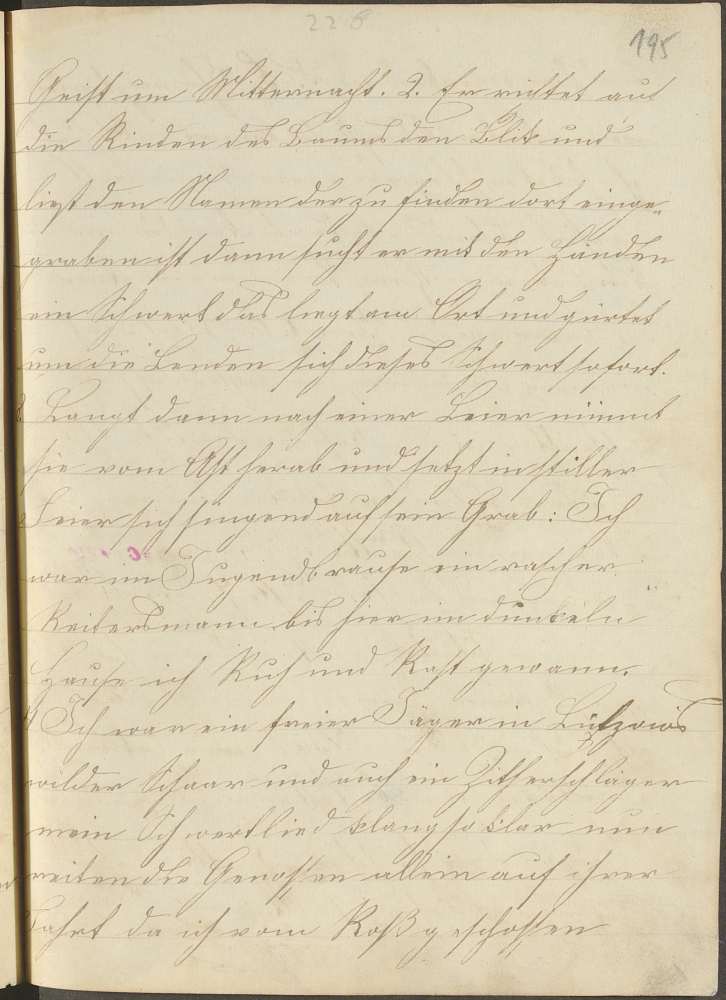 228
195
Geist um Mitternacht. 2. Er richtet auf
die Rinden des Baums den Blick und
liest den Namen der zu finden dort einge„
graben ist dann sucht er mit den Händen
ein Schwert das liegt am Ort und gürtet
um die Lenden sich dieses Schwert sofort.
3 Langt dann nach einer Leier nimmt
sie vom Ast herab und setzt in stiller
Feier sich singend auf sein Grab: Ich
war im Jugendbrause ein rascher
Reitersmann bis hier im dunkeln
Hause ich Ruh und Rast gewann.
4 Ich war ein freier Jäger in Lützows
wilder Schaar und auch ein Zitherschläger
mein Schwertlied klang so klar nun
reiten die Genossen allein auf ihrer
Fahrt da ich vom Roß geschossen